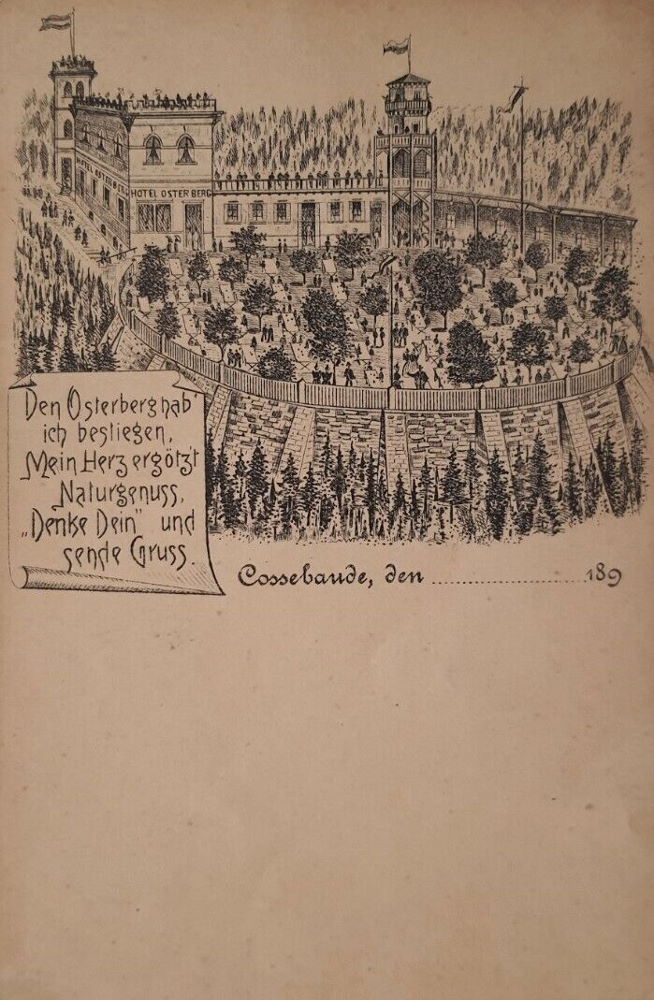 HOTEL OSTERBERG
HOTEL OSTERBERG
Den Osterberg hab'
ich bestiegen,
Mein Herz ergötzt
Naturgenuss,
„Denke Dein" und
sende Gruss.
Cossebaude, den ........................ 189